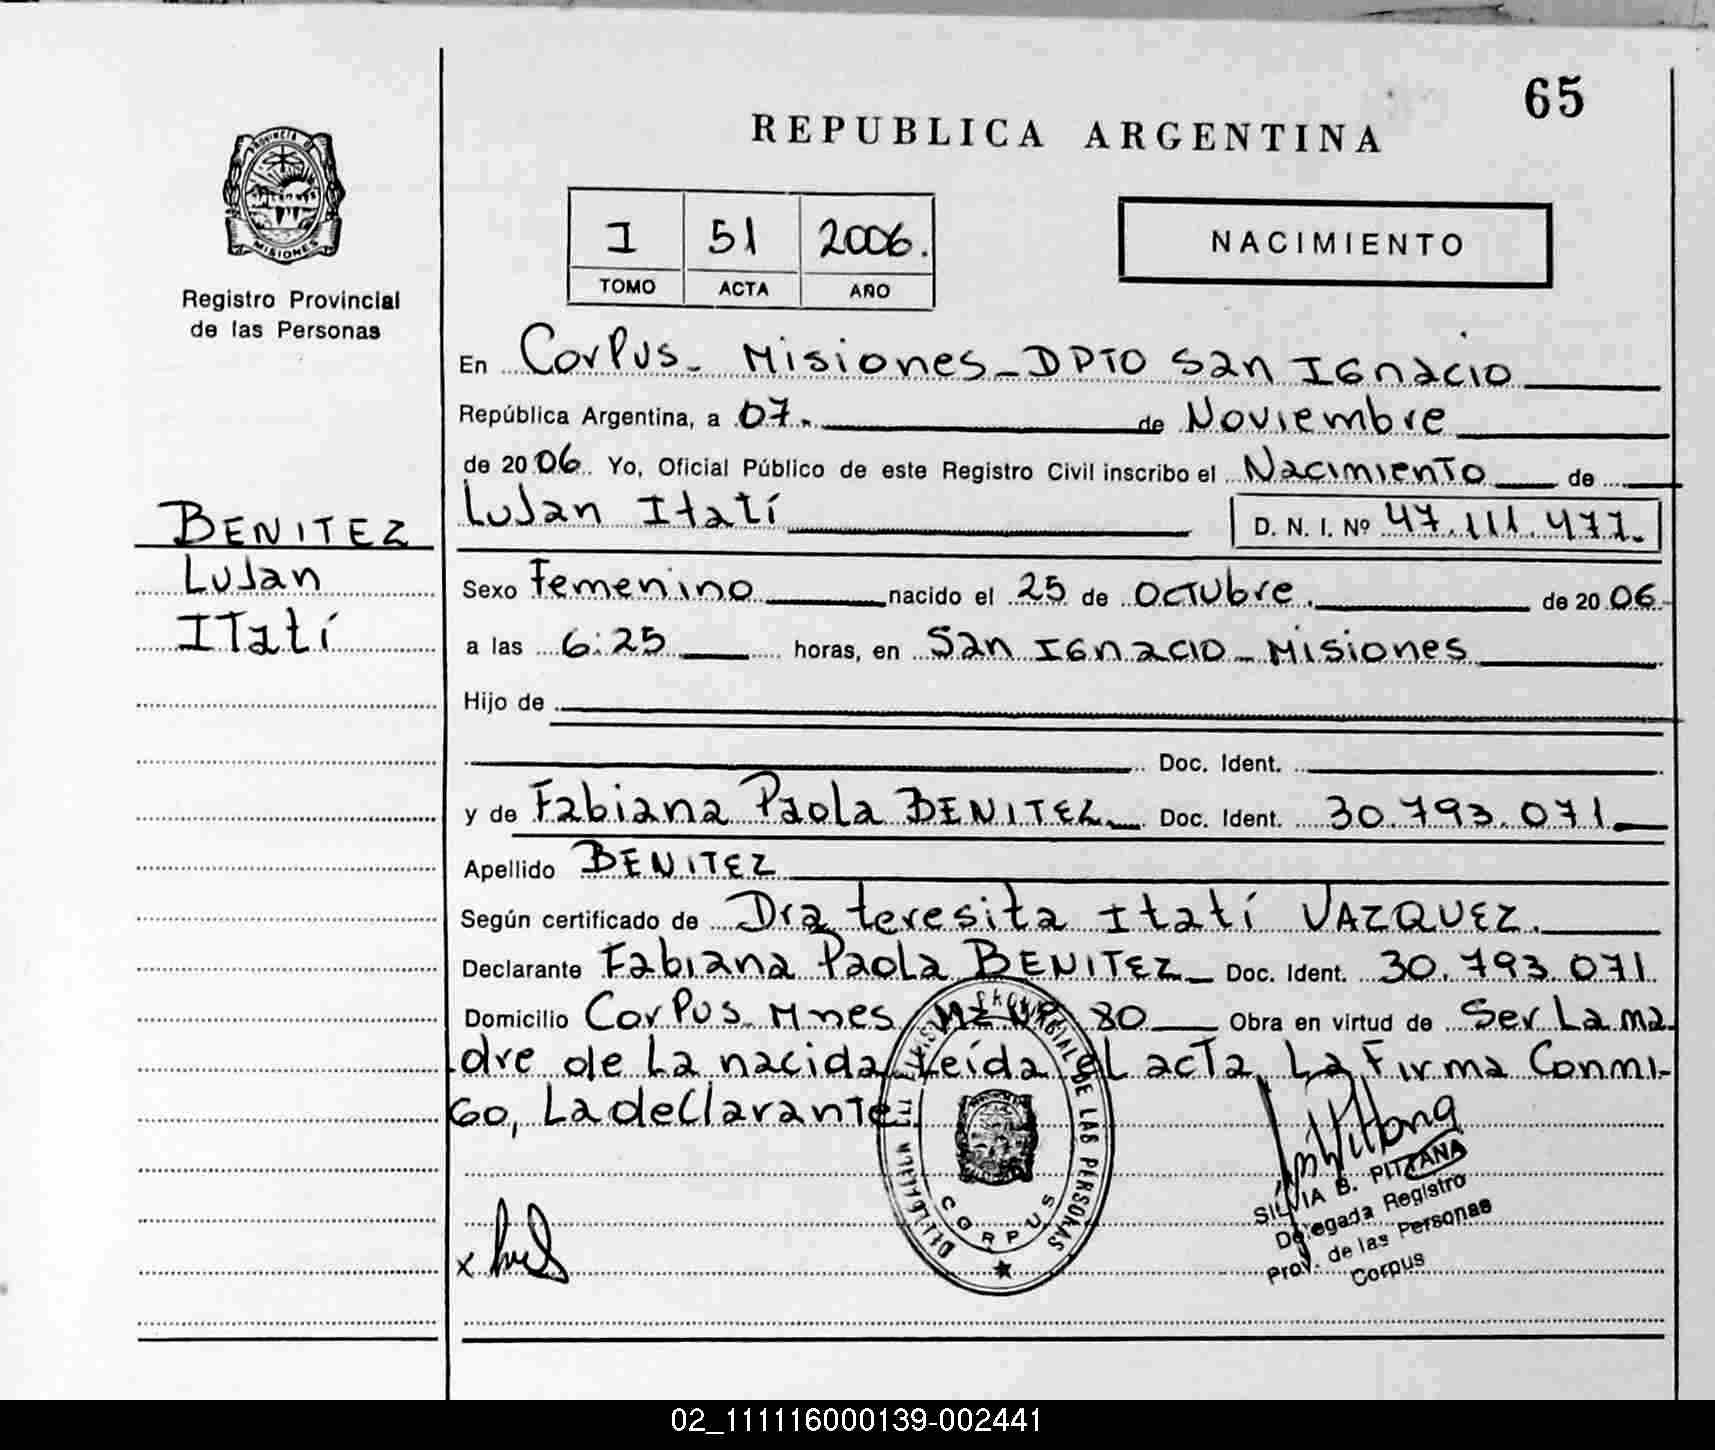 65
REPUBLICA ARGENTINA
PROVINCIA DE
MISIONES
Registro Provincial
de las Personas
I 51 2006.
TOMO ACTA AÑO
NACIMIENTO
En Corpus - Misiones - DPTO San Ignacio
República Argentina, a 07. de Noviembre
de 2006 Yo, Oficial Público de este Registro Civil inscribo el Nacimiento de
Lujan Itatí D. N. I. Nº 47.111.477.
BENITEZ
Lujan
Itatí
Sexo Femenino nacido el 25 de Octubre. de 2006
a las 6:25 horas, en San Ignacio - Misiones
Hijo de
Doc. Ident.
y de Fabiana Paola BENITEZ Doc. Ident. 30.793.071
Apellido BENITEZ
Según certificado de Dra teresita Itatí VAZQUEZ.
Declarante Fabiana Paola BENITEZ Doc. Ident. 30.793.071
Domicilio Corpus Mnes Mz 80 Obra en virtud de Ser La ma
dre de La nacida Leída el acta, La Firma Conmi-
go, La declarante.
DE LAS PERSONAS
CORPUS
SILVIA B. PITTANA
Delegada Registro
Prov. de las Personas
Corpus
x
02_111116000139-002441